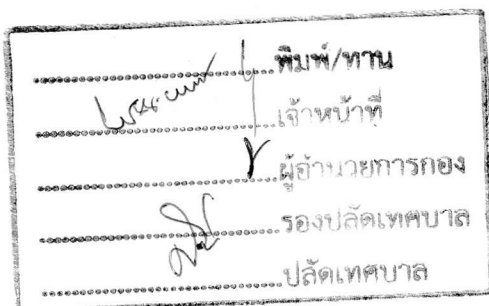 พิมพ์/ทาน
เจ้าหน้าที่
ผู้อำนวยการกอง
รองปลัดเทศบาล
ปลัดเทศบาล